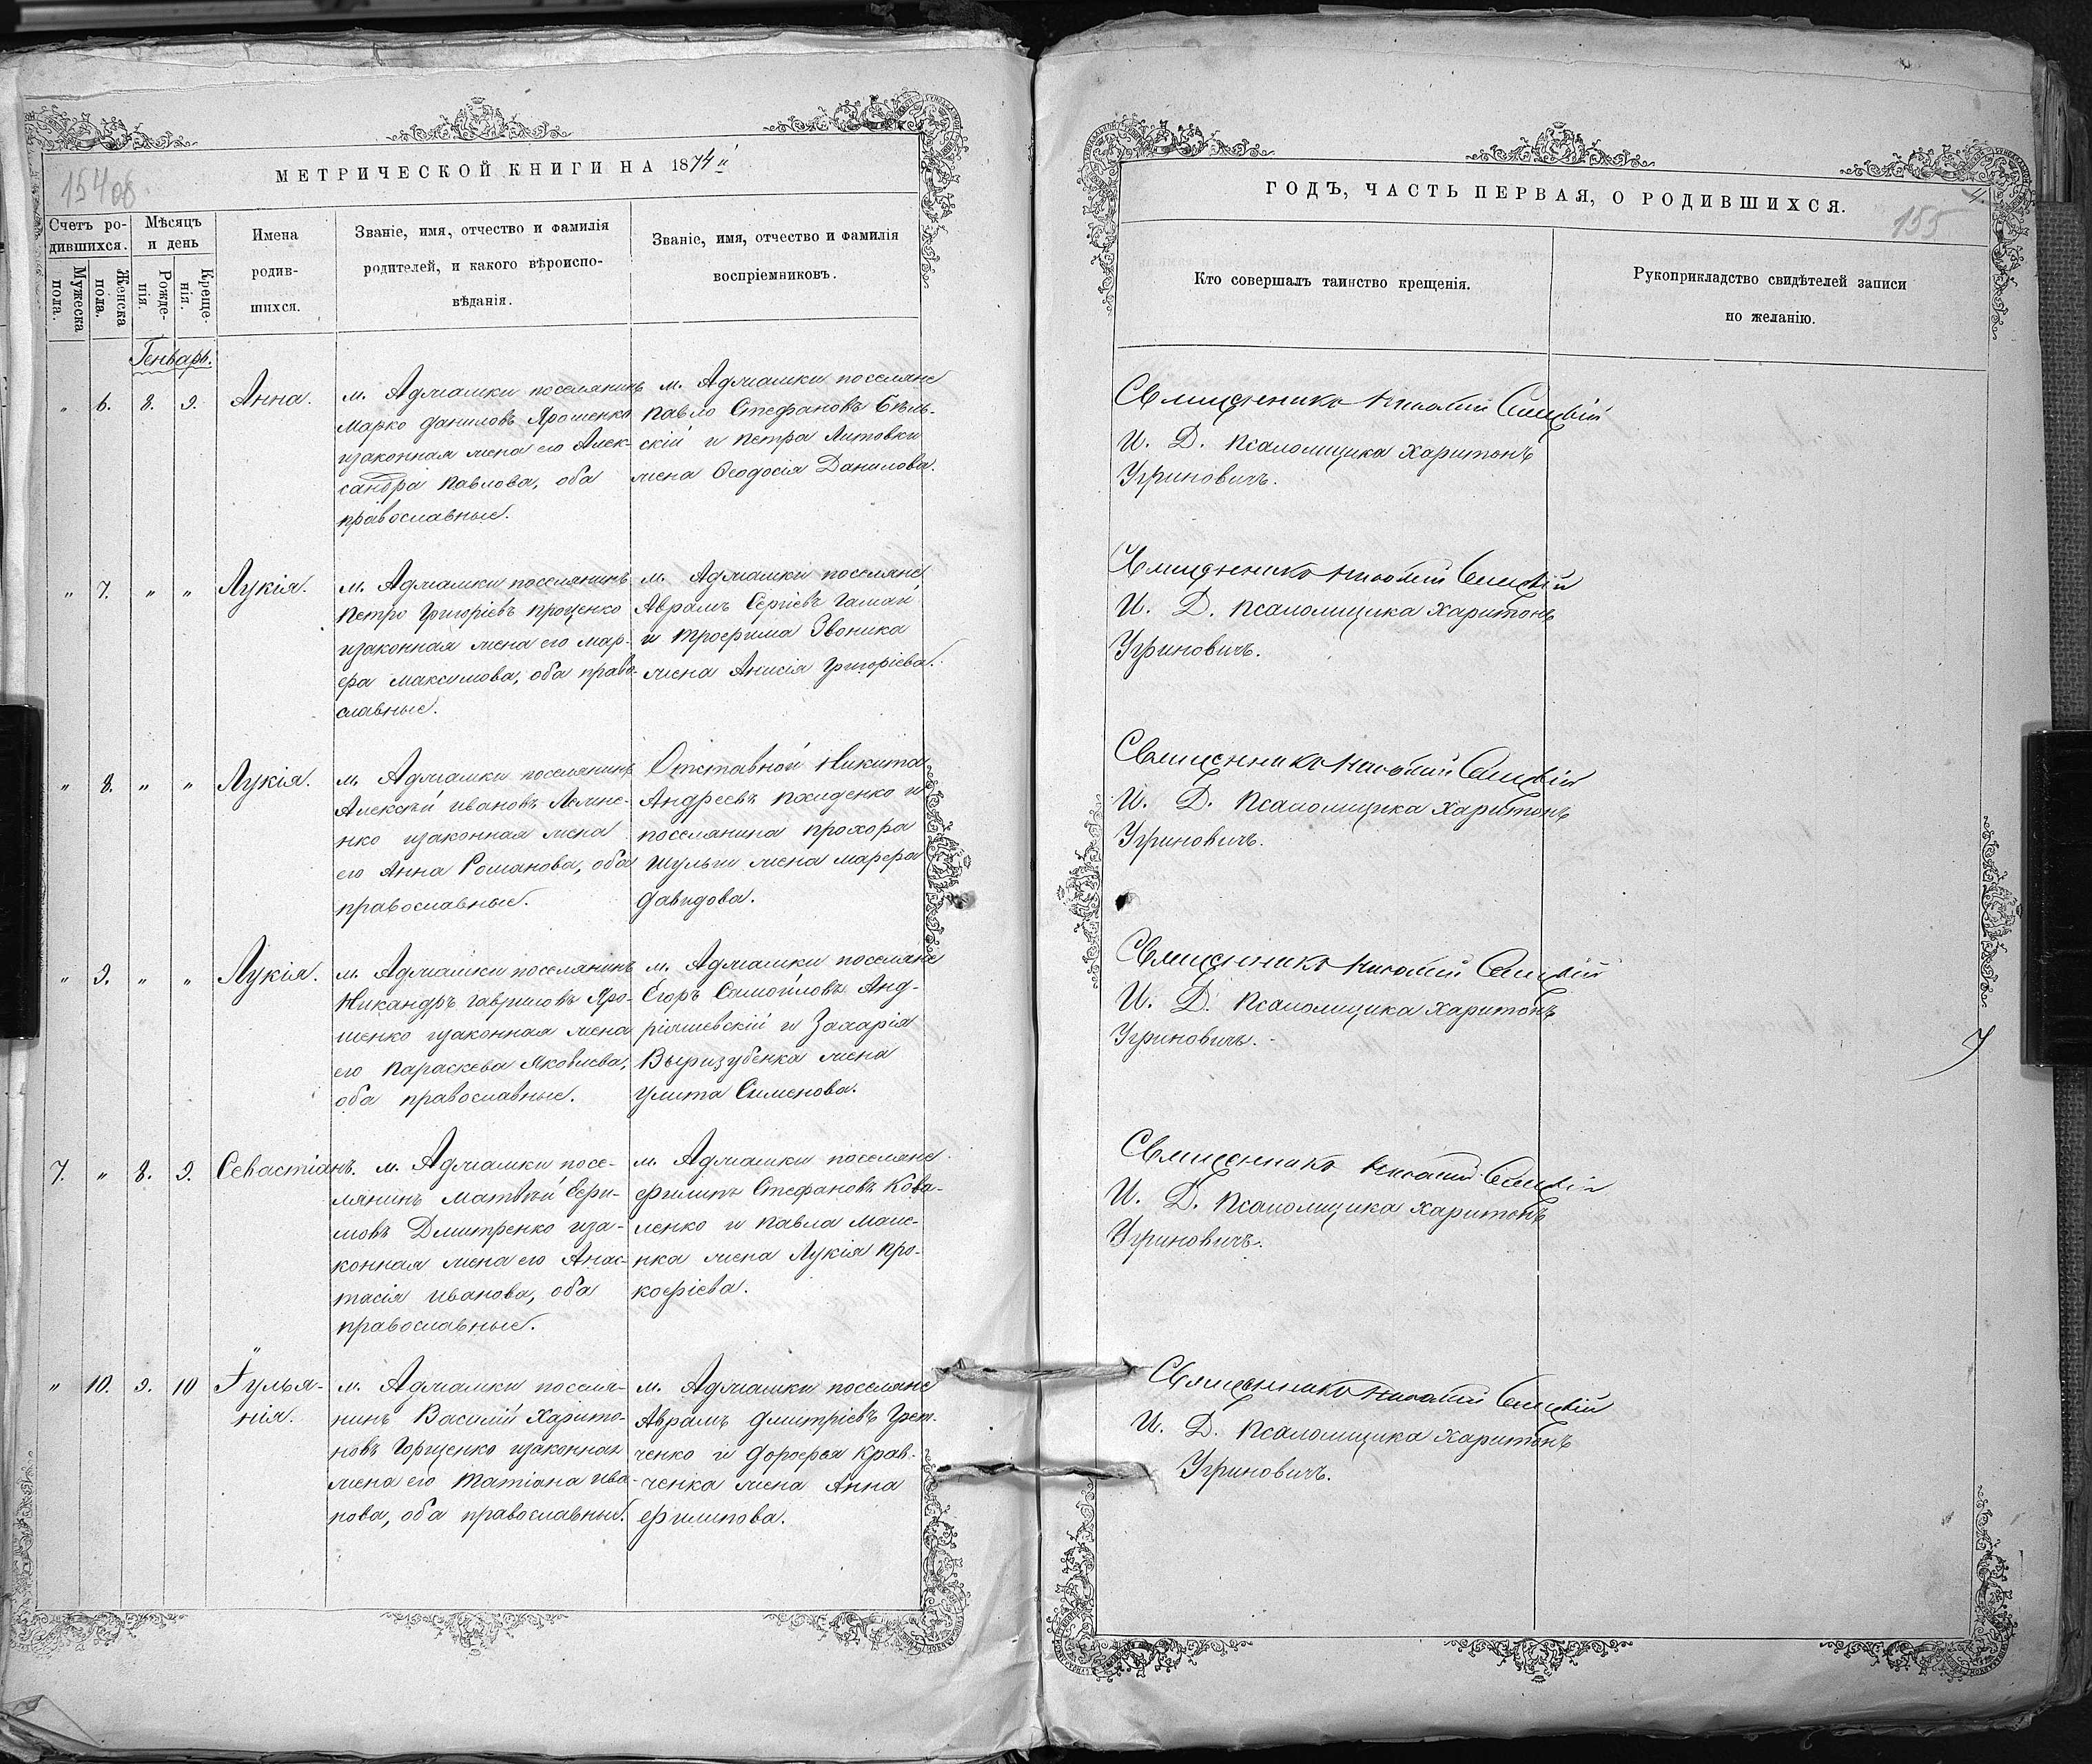 МЕТРИЧЕСКОЙ КНИГИ НА 1874 й
154об
Счетъ ро-
дившихся.
Мужеска
пола.
Женска
пола.
Мѣсяцъ
и день
Рожде-
нія.
Креще-
нія.
Имена
родив-
шихся.
Званіе, имя, отчество и фамилія
родителей, и какого вѣроиспо-
вѣданія.
Званіе, имя, отчество и фамилія
воспріемниковъ.
Генварь.
" 6. 8. 9. Анна.
м. Адмамки поселянинъ
Марко Даниловъ Ярошенко
изаконная жена его Алек-
сандра Павлова, оба
православные.
м. Адмамки поселяне
Павло Стефановъ Бѣль-
скій и Петра Литовки
жена Ѳеодосія Данилова.
" 7. " " Лукія.
м. Адмамки поселянинъ
Петро Григоріевъ Проценко
изаконная жена его Мар-
фа Максимова, оба право-
славные.
м. Адмамки поселяне
Аврамъ Сергіевъ Гамай
и Трофима Звоника
жена Анисія Григоріева.
" 8. " " Лукія.
м. Адмамки поселянинъ
Алексѣй Ивановъ
нко изаконная жена
его Анна Романова, оба
православные.
Отставной Никита
Андреевъ и
поселянина Прохора
Шульги жена Марфа
Давидова.
" 9. " " Лукія.
м. Адмамки поселянинъ
Никандръ Гавриловъ Яро-
шенко изаконная жена
его Параскева Яковлева,
оба православные.
м. Адмамки поселяне
Егоръ Самойловъ Анд-
ріяшевскій и Захарія
Выризубенка жена
Улита Сименова.
7. " 8. 9. Севастіанъ.
м. Адмамки посе-
лянинъ Матвѣй Ефи-
мовъ Дмитренко иза-
конная жена его Анас-
тасія Иванова, оба
православные.
м. Адмамки поселяне
Филипъ Стефановъ Кова-
ленко и Павла
нка жена Лукія Про-
кофіева.
" 10. 9. 10 Іулья-
нія.
м. Адмамки поселя-
нинъ Василій Харито-
новъ Горщенко изаконная
жена его Татіана Ива-
нова, оба православные.
м. Адмамки поселяне
Аврамъ Дмитріевъ Грет-
ченко и Дорофея Крав-
ченка жена Анна
Филипова.
ГОДЪ, ЧАСТЬ ПЕРВАЯ, О РОДИВШИХСЯ.
4.
155
Кто совершалъ таинство крещенія.
Рукоприкладство свидѣтелей записи
по желанію.
Священникъ Николай
И. Д. Псаломщика Харитонъ
Угриновичъ.
Священникъ Николай
И. Д. Псаломщика Харитонъ
Угриновичъ.
Священникъ Николай
И. Д. Псаломщика Харитонъ
Угриновичъ.
Священникъ Николай
И. Д. Псаломщика Харитонъ
Угриновичъ.
Священникъ Николай
И. Д. Псаломщика Харитонъ
Угриновичъ.
Священникъ Николай
И. Д. Псаломщика Харитонъ
Угриновичъ.